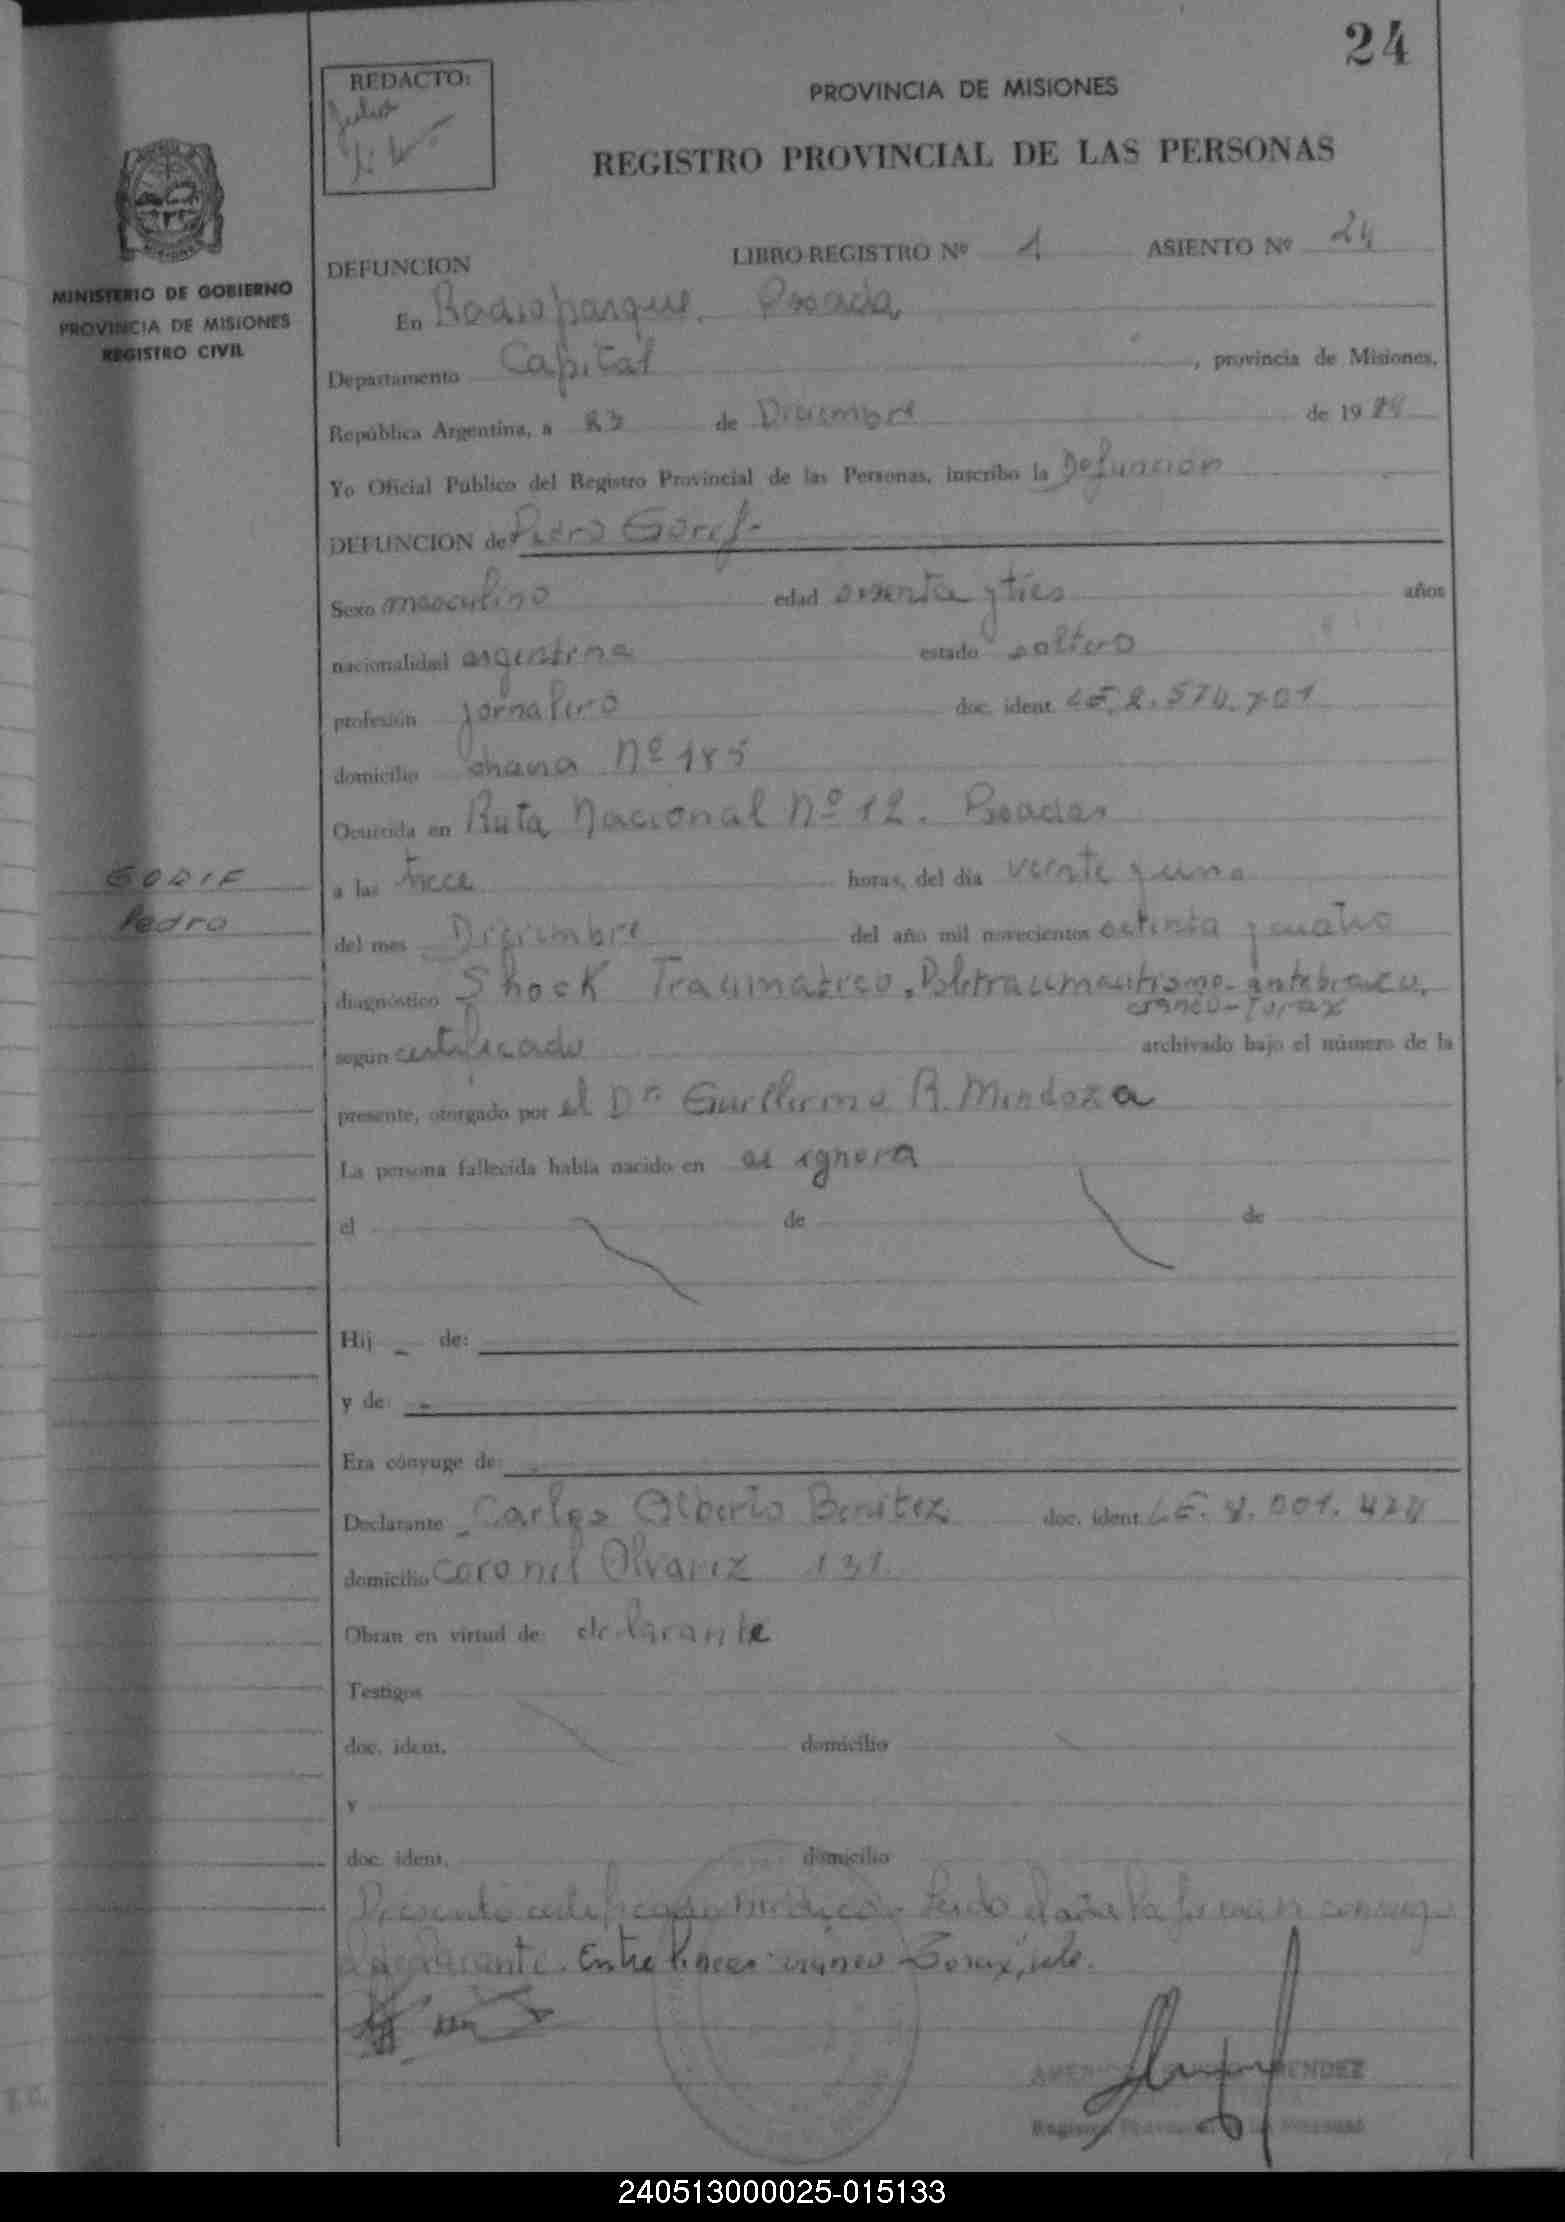 24
REDACTO:
PROVINCIA DE MISIONES
REGISTRO PROVINCIAL DE LAS PERSONAS
MINISTERIO DE GOBIERNO
PROVINCIA DE MISIONES
REGISTRO CIVIL
DEFUNCION LIBRO-REGISTRO Nº 1 ASIENTO Nº 24
En Posadas
Departamento Capital, provincia de Misiones,
República Argentina, a 23 de Diciembre de 19
Yo Oficial Público del Registro Provincial de las Personas, inscribo la Defunción
DEFUNCION de Pedro
Sexo masculino edad y tres años
nacionalidad argentina estado soltero
profesión jornalero doc. ident. LE.
domicilio Nº 185
Ocurrida en Ruta Nacional Nº 12. Posadas
GODIF
Pedro
a las trece horas, del día veinte y uno
del mes Diciembre del año mil novecientos y cuatro
diagnóstico Shock Traumatico. Politraumautismo-antebraco.
craneo-Torax
según certificado archivado bajo el número de la
presente, otorgado por el Dr. Guillermo R. Mendoza
La persona fallecida había nacido en se ignora
el de de
Hij de:
y de:
Era cónyuge de:
Declarante Carlos Alberto Benitez doc. ident. LE.
domicilio Coronel Alvarez 131.
Obran en virtud de: declarante
Testigos
doc. ident. domicilio
y
doc. ident. domicilio
Presento certificado médico. Leido el acta la firman conmigo
declarante. Entre lineas: craneo Torax, vale.
MENDEZ
240513000025-015133